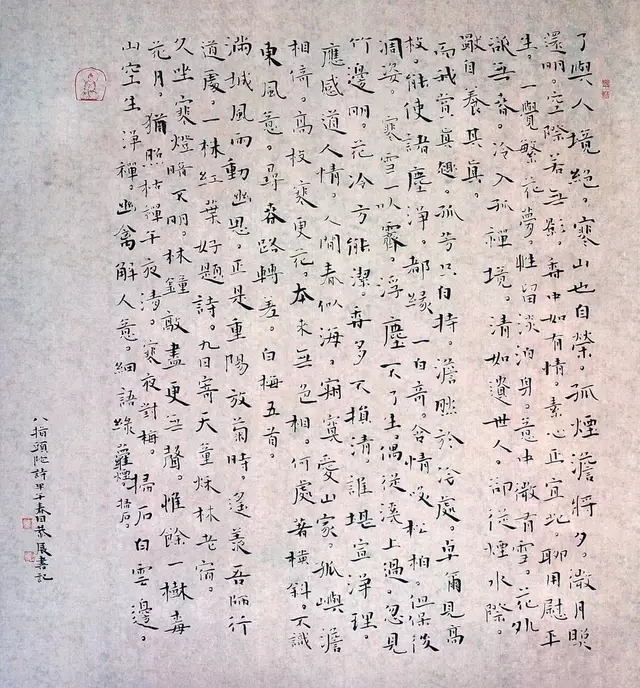 了與人境絕。寒山也自榮。孤煙澹將夕。微月照
還明。空際若無影。香中如有情。素心正宜此。聊用慰平
生。一覺繁花夢。性留淡泊身。意中微有雪。花外
欲無春。冷入孤禪境。清如遺世人。卻從煙水際。
獨自養其真。
而我賞真趣。孤芳只自持。澹然於冷處。卓爾見高
枝。能使諸塵淨。都緣一白奇。含情笑松柏。但保後
凋姿。寒雪一以霽。浮塵不了生。偶從溪上過。忽見
竹邊明。花冷方能潔。香多不損清。誰堪宣淨理。
應感道人情。人間春似海。寂寞愛山家。孤嶼澹
相倚。高枝寒更花。本來無色相。何處著橫斜。不識
東風意。尋春路轉差。白梅五首。
滿城風雨動幽思。正是重陽放菊時。遙羨吾師行
道處。一林紅葉好題詩。九日寄天童秋林老宿。
久坐寒燈暗不明。林鐘敲盡更無聲。惟餘一樹梅
花月。猶照枯禪午夜清。寒夜對梅。掃石白雲邊。
山空生淨禪。幽禽解人意。細語綠蘿煙。掃石
八指頭陀詩甲午春日恭展書記